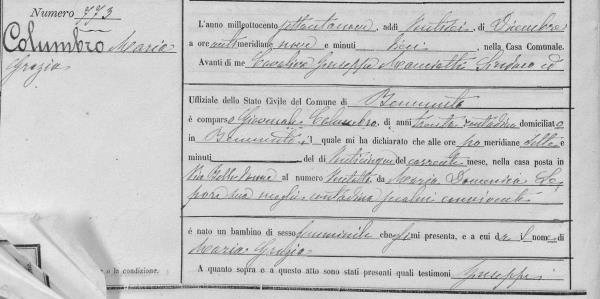 Numero 773
Columbro Maria
Grazia
L'anno milleottocento settantanove, addì ventisei, di Dicembre
a ore antimeridiane nove e minuti dieci, nella Casa Comunale.
Avanti di me Cavaliere Giuseppe Manciotti Sindaco ed
Uffiziale dello Stato Civile del Comune di Benevento
è comparso Giovanni Columbro, di anni trenta contadino domiciliato
in Benevento, il quale mi ha dichiarato che alle ore pomeridiane sette e
minuti del dì venticinque del corrente mese, nella casa posta in
Via al numero ventotto, da Maria Domenica Le
pore sua moglie contadina seco lui convivente
è nato un bambino di sesso femminile che mi presenta, e a cui dà il nome di
Maria Grazia
A quanto sopra e a questo atto sono stati presenti quali testimoni Giuseppe
o la condizione.